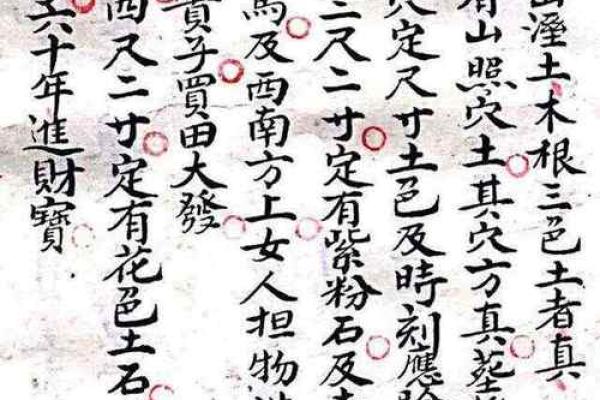 溼土木根三色土者真
有山照穴土其穴方真
定尺寸土色及時刻應
二尺二寸定有紫粉石及
馬及西南方上女人担物
貴子買田大發
四尺二寸定有花色土石
六十年進財寶